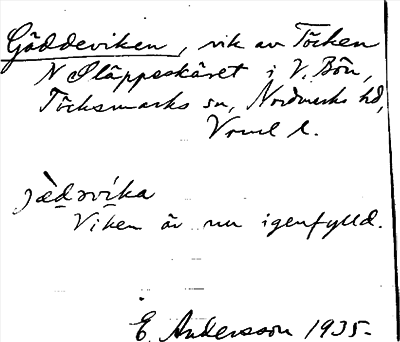 Gäddeviken, vik av Töcken
N Släppeskäret i V. Bön,
Töcksmarks sn, Nordmarks hd,
Vrml l.
jæ̀dəvíka
Viken är nu igenfylld.
E. Andersson 1935.